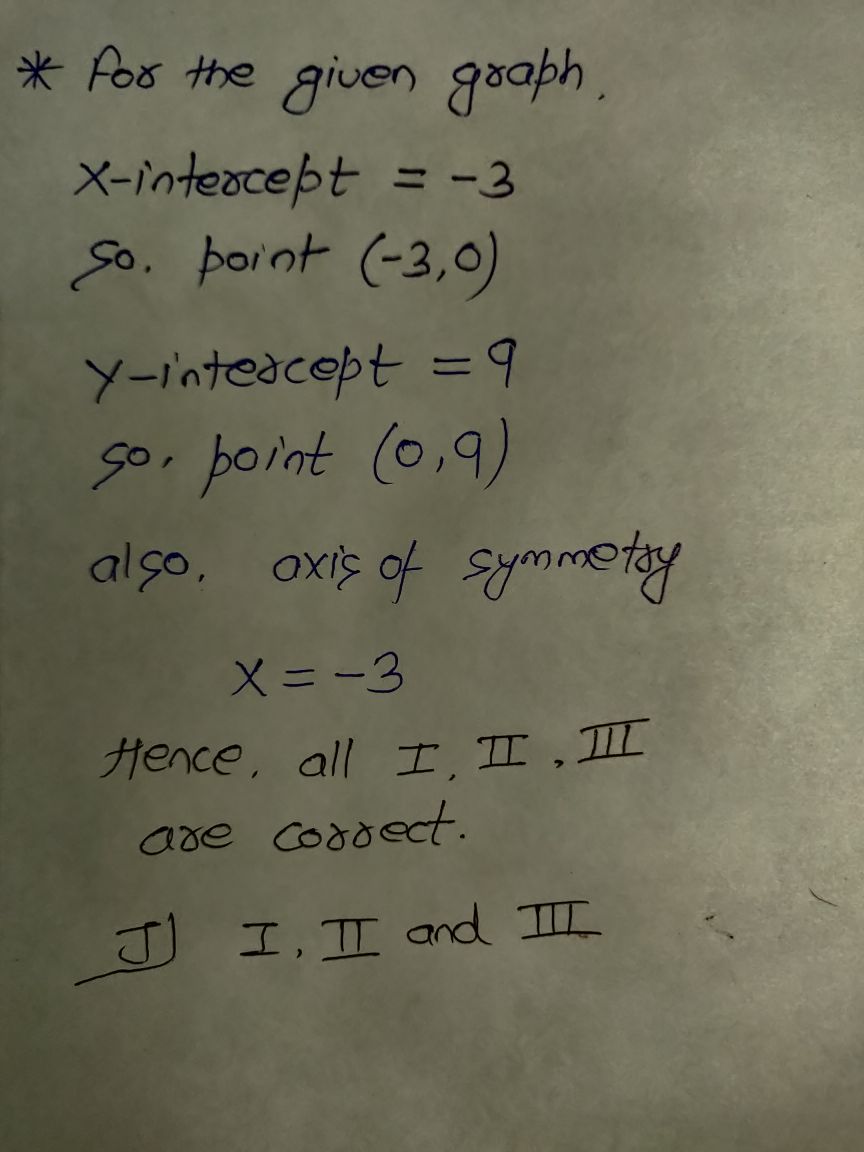 * For the given graph.
X-intercept = -3
So. point (-3,0)
Y-intercept = 9
So, point (0,9)
also, axis of symmetry
X = -3
Hence, all I, II, III
are correct.
J) I, II and III